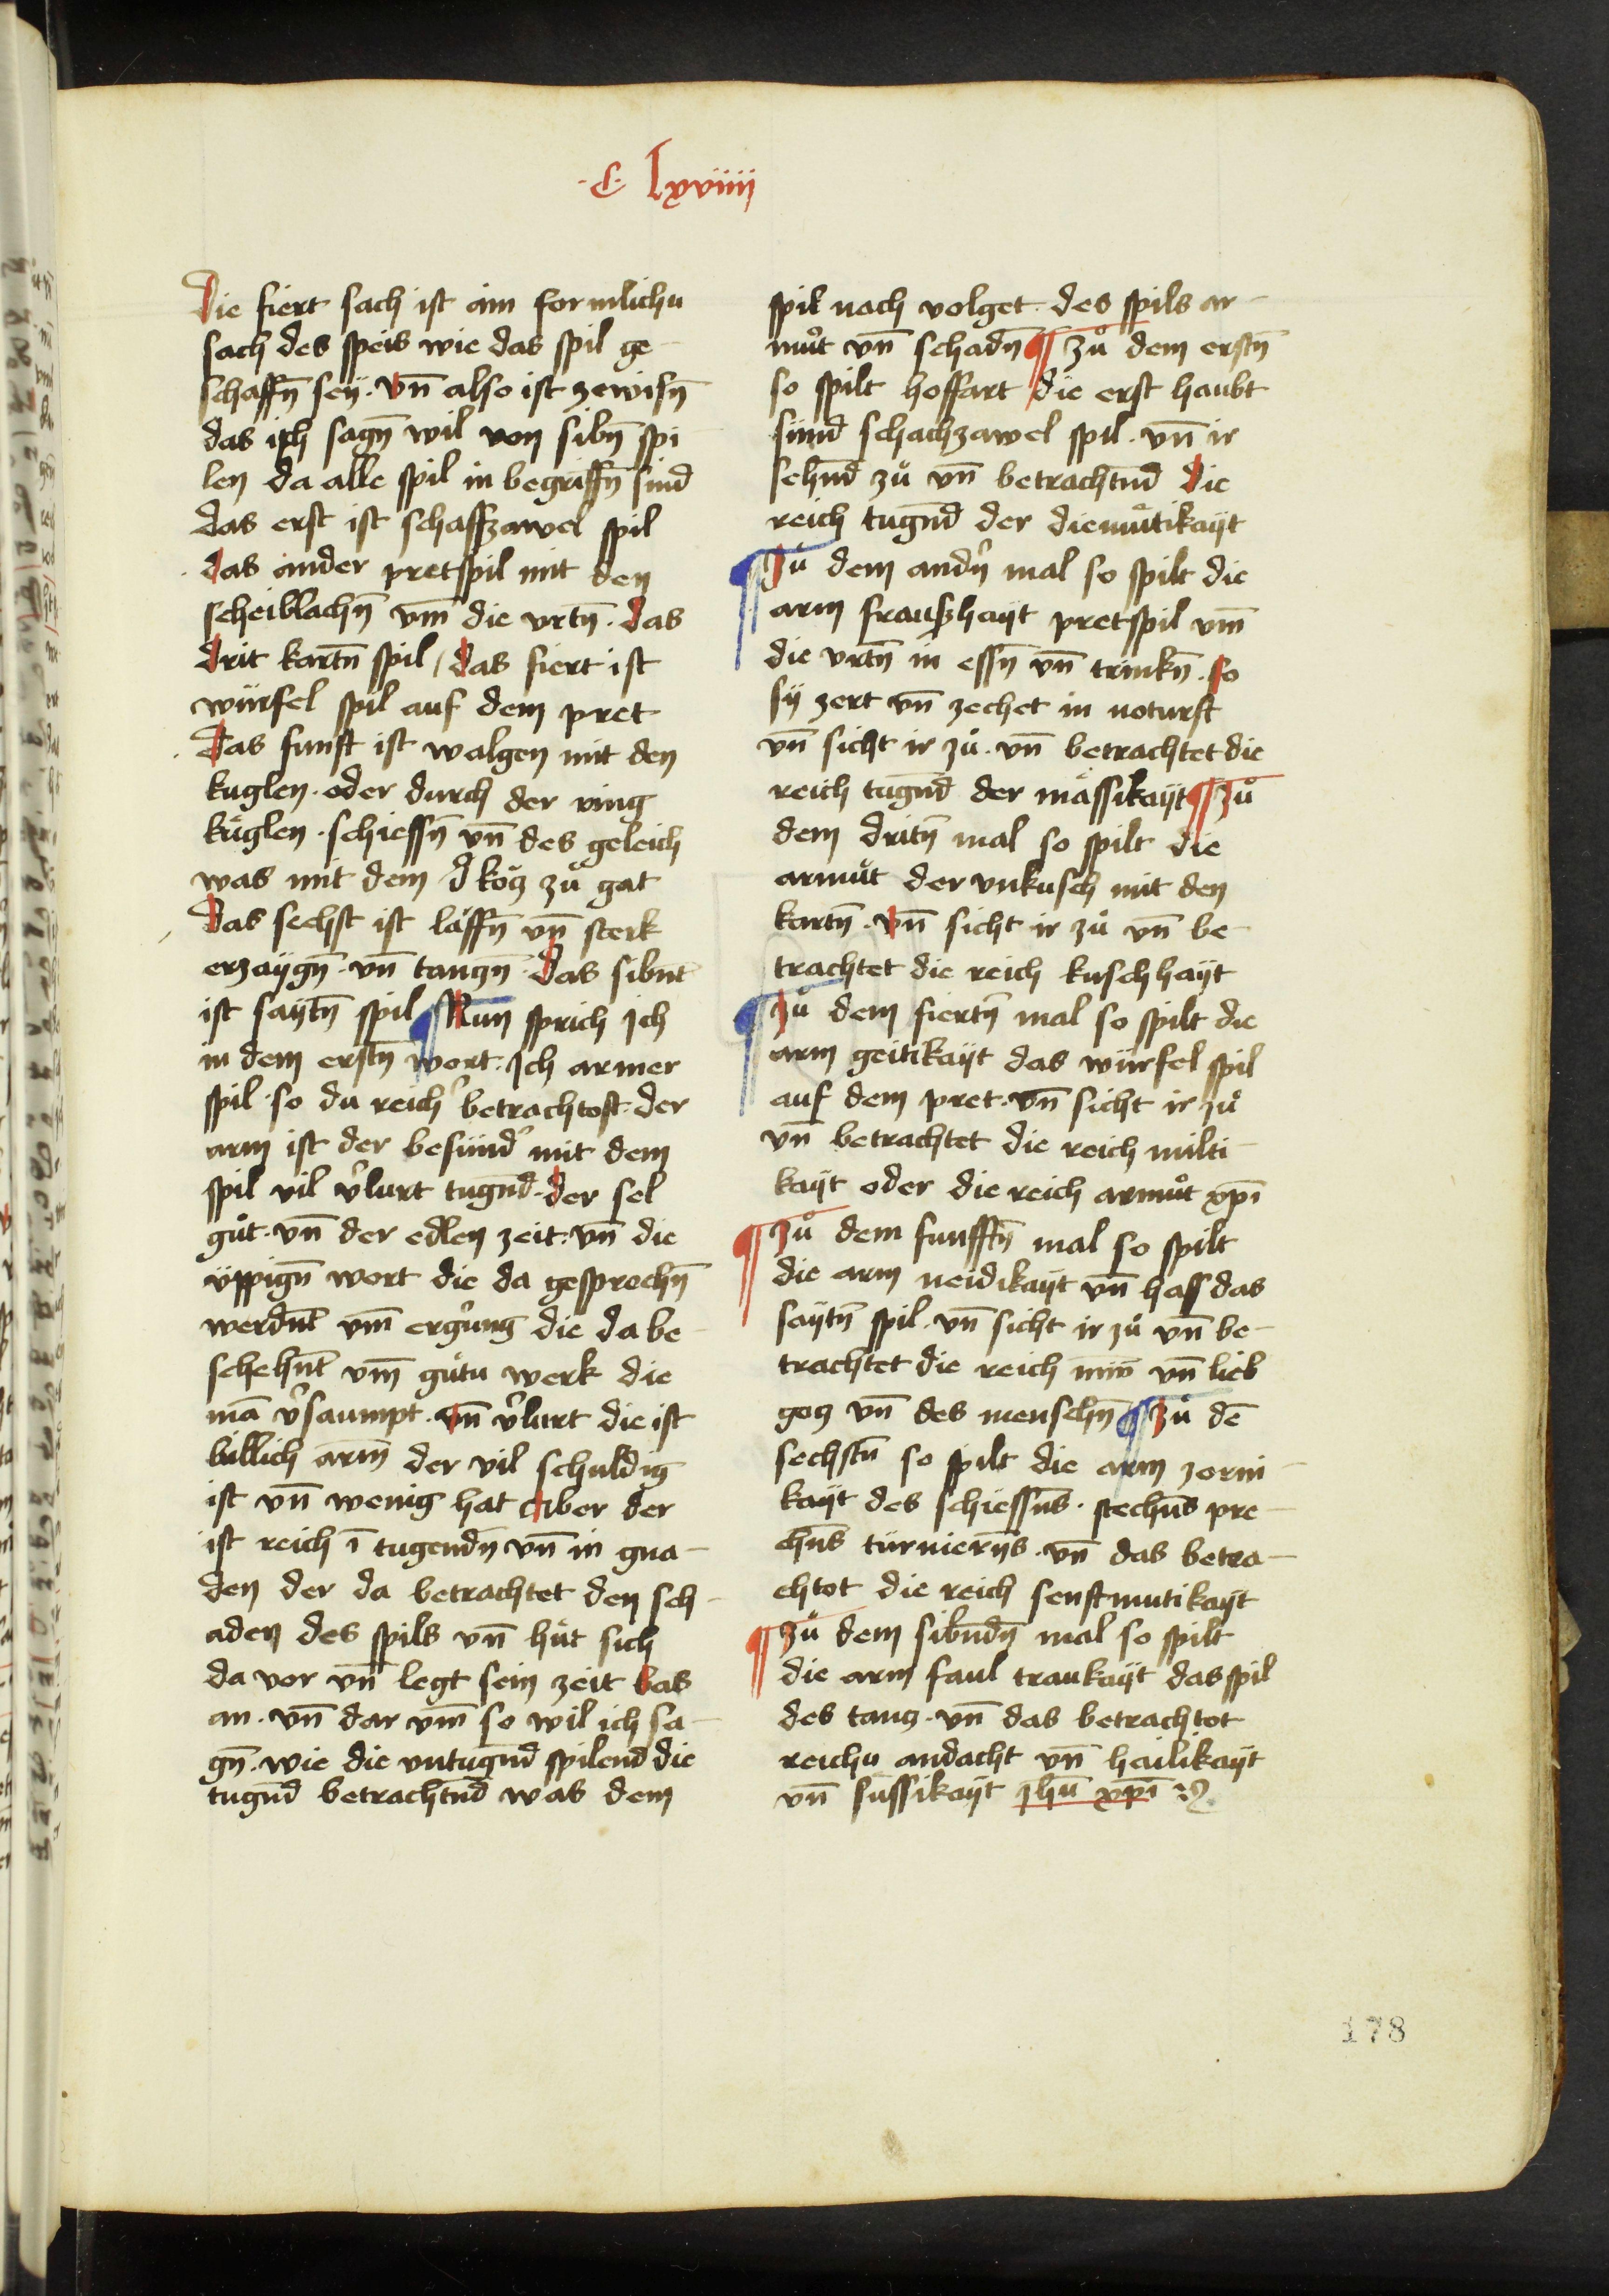 ·C· lxviiii
Die fiert sach ist ain formlichu
sach des speis wie das spil ge-
schaffn̄ seÿ · vn̄ also ist zewisn̄
das ich sagn̄ wil von sibn̄ spi
len da alle spil in begriffn̄ sind
das erst ist schaffzawel spil
· das ander pretspil mit den
scheiblachn̄ vm̄ die vrtn̄ · das
drit kartn̄ spil / das fiert ist
würfel spil auf dem pret
· Das funft ist walgen mit den
kuglen · oder durch der ring
kůglen · schiessn̄ vn̄ des geleich
was mit dem zů gat
Das sechst ist läffn̄ vn̄ sterk
erzaÿgn̄ · vn̄ tanczn̄ · Das sibnt̄
ist saÿtn̄ spil ¶ Nun sprich Ich
in dem erstn̄ wort · Ich armer
spil · so du reich᾿ betrachtost · der
arm ist der besünd᾿ mit dem
spil vil v᾿lurt tugn̄d · der sel
gůt · vn̄ der edlen zeit · vn̄ die
üppign̄ wort die da gesprochn̄
werdn̄t vm̄ erg᾿ung die da be-
schehn̄t vm̄ gůtu werk die
mā v᾿saumpt · vn̄ v᾿lurt die ist
billich arm̄ der vil schuldig
ist vn̄ wenig hat Aber der
ist reich ī tugendn̄ vn̄ in gna-
den der da betrachtet den sch-
aden des spils vn̄ hůt sich
da vor vn̄ legt sein zeit bas
an · vn̄ dar vm̄ so wil ich sa-
gn̄ · wie die vntugn̄d spilend die
tugn̄d betrachtn̄d was dem
spil nach volget · des spils ar-
můt vn̄ schadn̄ ¶ zů dem erstn̄
so spilt hoffart die erst haubt
sünd schachzawel spil · vn̄ ir
sehn̄d zů vn̄ betrachtn̄d die
reich tugn̄d der diemůtikaÿt
¶ Zů dem andn̄ mal so spilt die
arm fraußhaÿt pretspil vm̄
die vrtn̄ in essn̄ vn̄ trinkn̄ · so
sÿ zert vn̄ zechet in noturft
vn̄ sicht ir zů · vn̄ betrachtet die
reich tugn̄d der mässikaÿt ¶ zů
dem dritn̄ mal so spilt die
armůt der vnkusch mit den
kartn̄ · vn̄ sicht ir zů vn̄ be-
trachtet die reich kuschhaÿt
¶ Zů dem fiertn̄ mal so spilt die
arm geitikaÿt das würfel spil
auf dem pret · vn̄ sicht ir zů
vn̄ betrachtet die reich milti-
kaÿt oder die reich armůt xp̄i
¶ Zů dem funfftn̄ mal so spilt
die arm neidikaÿt vn̄ hass das
saÿtn̄ spil · vn̄ sicht ir zů vn̄ be-
trachtet die reich min̄ vn̄ lieb
gocz vn̄ des menschn̄ ¶ Zů dē
sechstn̄ so spilt die arm zorni-
kaÿt des schiessn̄s · stechn̄s pre-
chn̄s türniern̄s · vn̄ das betra-
chtot die reich senftmutikaÿt
¶ Zů dem sibn̄dn̄ mal so spilt
die arm faul traukaÿt das spil
des tancz · vn̄ das betrachtot
reichu andacht vn̄ hailikaÿt
vn̄ süssikaÿt ihū xp̄i
178